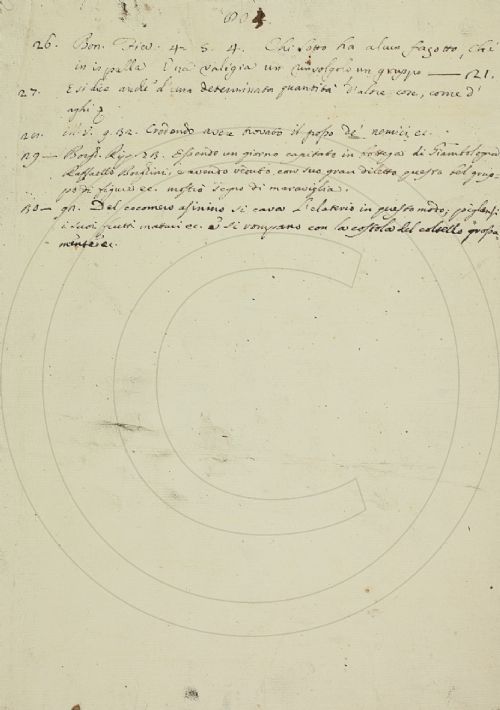 26. Bon. Fier. 4. 5. 4. Chi sotto ha alcun fagotto, chi
in ispalla Una valigia un rinvolgrio un gruppo — 121.
27. E si dice anche d'una determinata quantità d'alcune cose, come d'
aghi
ivi. g. 32. Credendo aver trovato il posso de' nemici ec.
29 — Borgh. Rip. 23. Essendo un giorno capitato in bottega di Giambologna
Raffaello Borghini, e avendo veduto con suo gran diletto questo bel grup-
po di figure ec. mostrò segno di maraviglia.
30 — Del cocomero asinino si cava l'elaterio in questo modo; piglansi
i suoi frutti maturi ec. e si rompano con la costola del coltello grossa
mente ec.